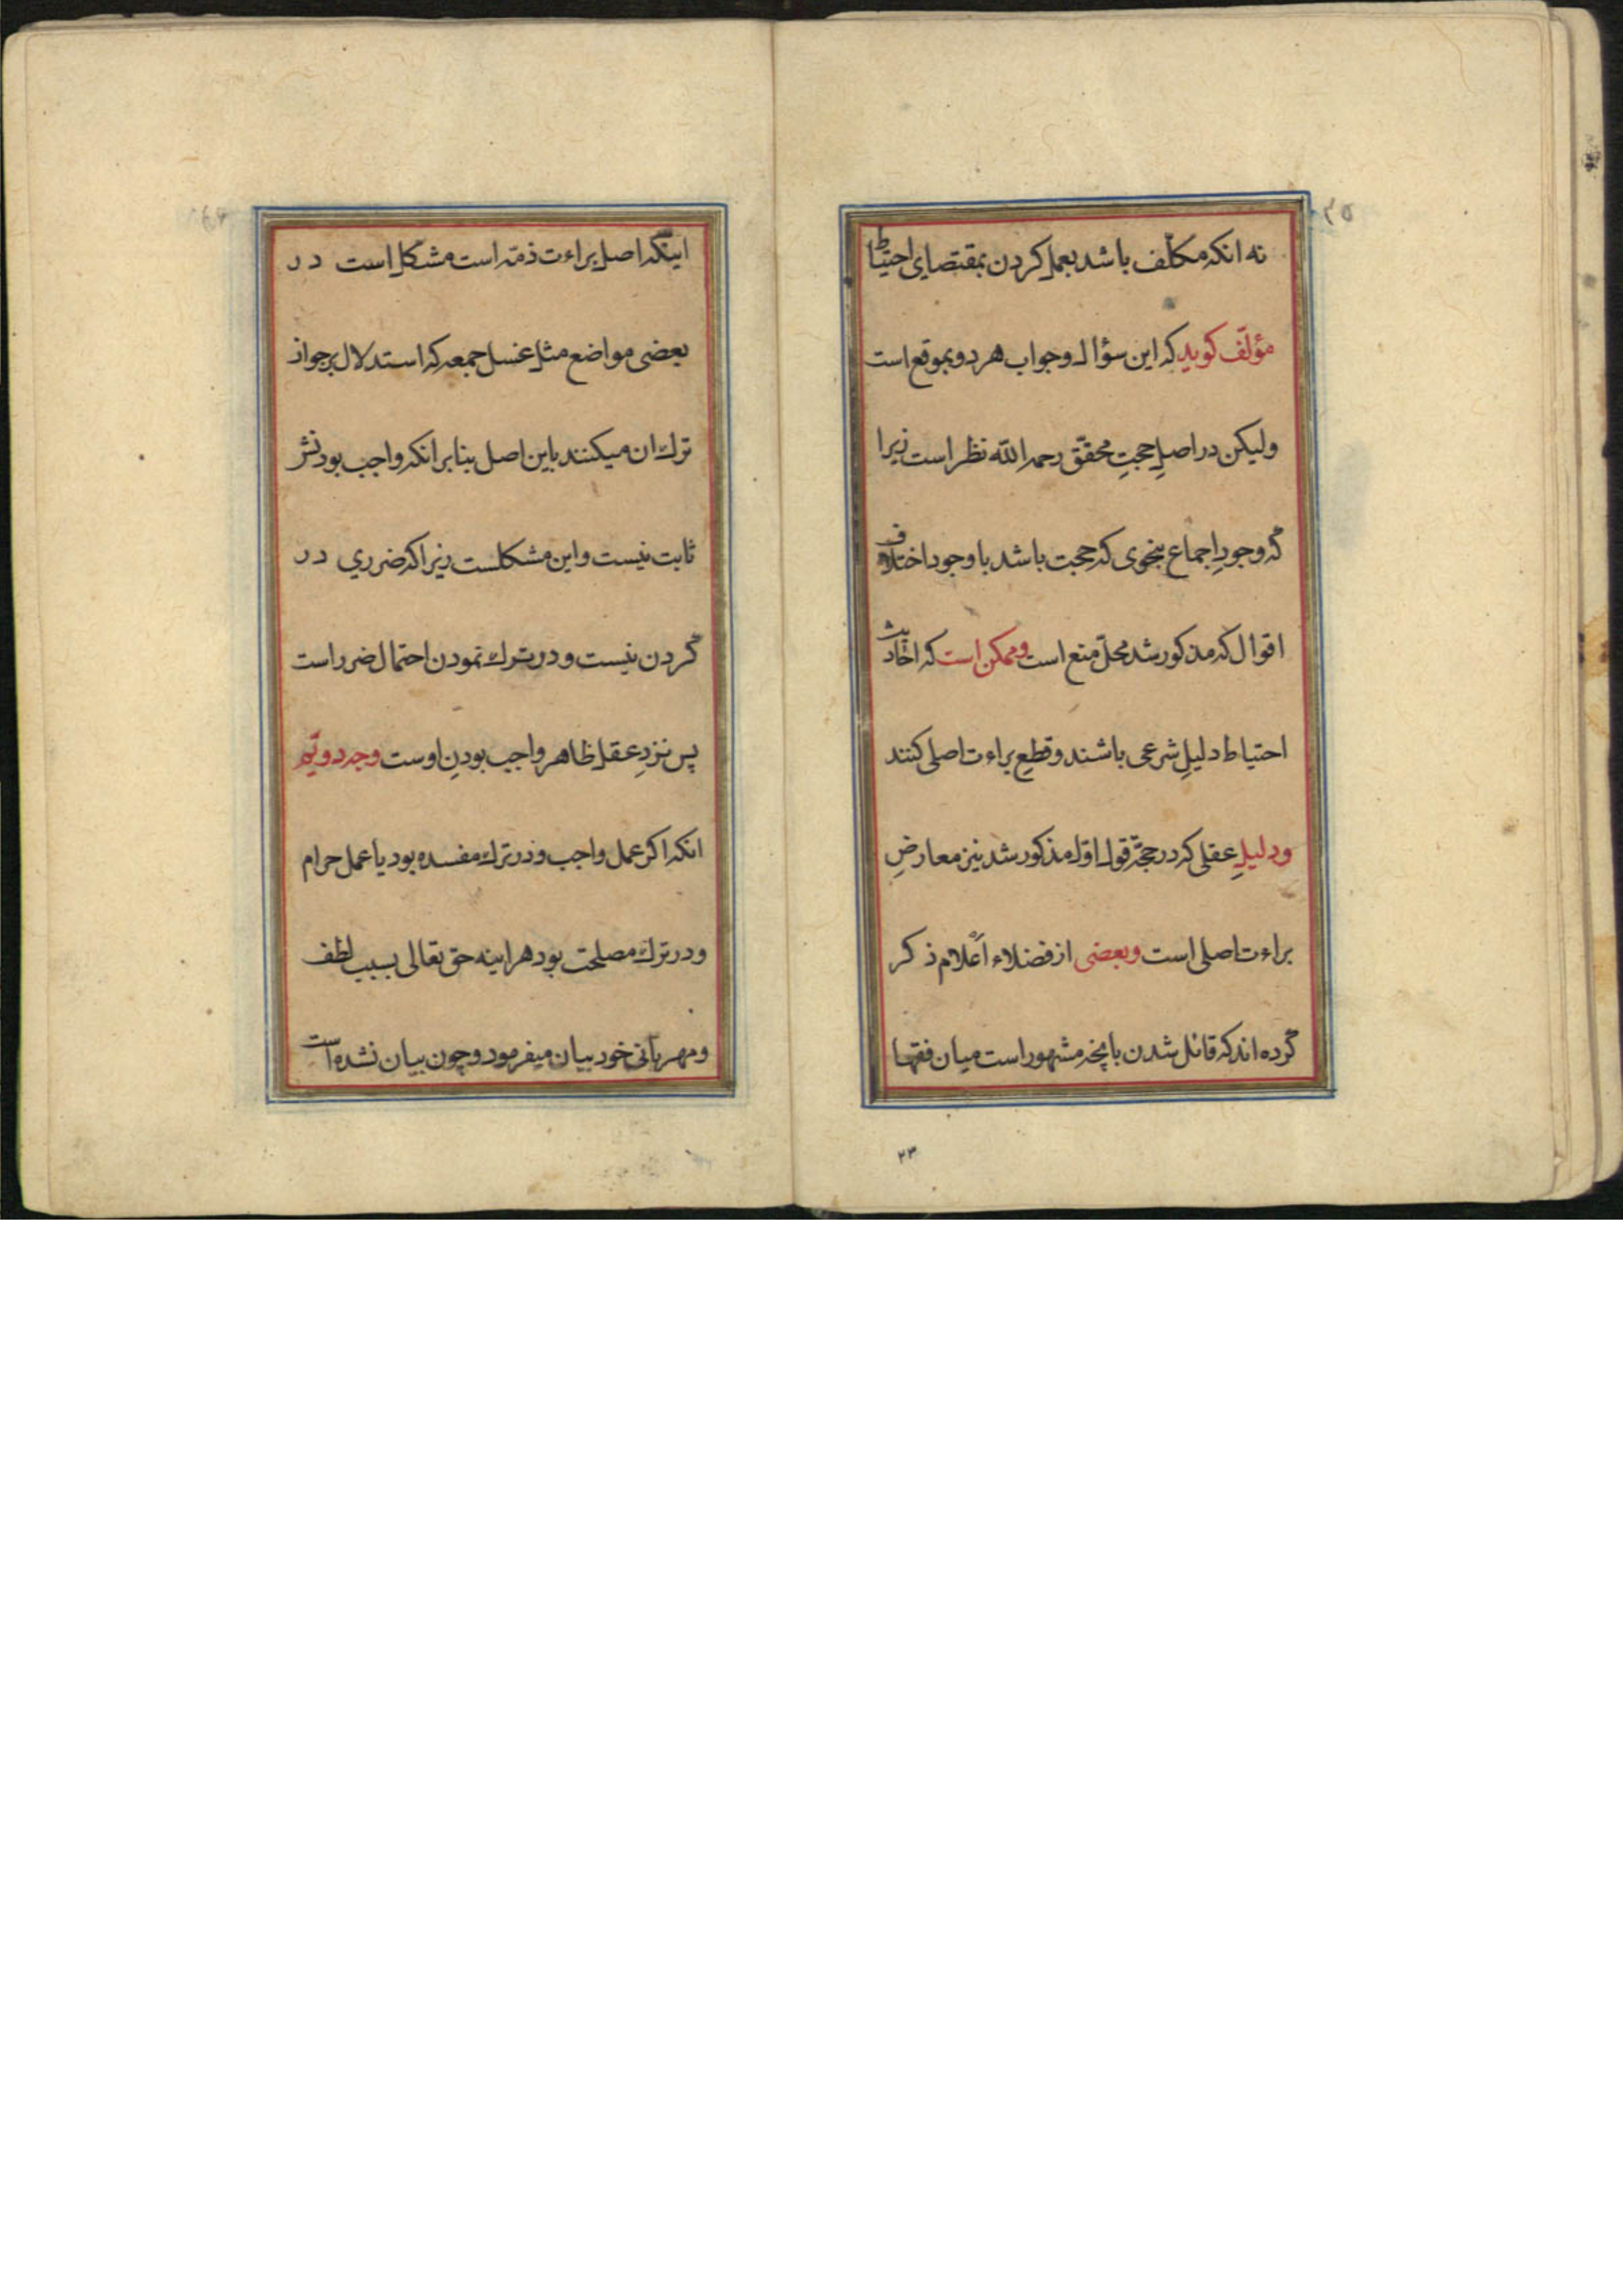 نه انکه مکلّف باشد بعمل کردن بمقتضای احتیاط
مؤلّف کوید که این سؤال و جواب هر دو بموقع است
ولیکن در اصلِ حجتِ محقّق رحمه اللّه نظر است زیرا
که وجودِ اجماع بنحوی که حجت باشد با وجود اختلاف
اقوال که مذکور شد محلّ منع است و ممکن است که احادیث
احتیاط دلیلِ شرعی باشند و قطعِ براءت اصلی کنند
و دلیلِ عقلی که در حجّة قول اوّل مذکور شد نیز معارضِ
براءت اصلی است و بعضی از فضلاء اَعْلام ذکر
کرده اند که قائل شدن بانچه مشهور است میان فقها
۲۳
اینکه اصل براءت ذمّه است مشکل است در
بعضی مواضع مثل غسل جمعه که استدلال بر جواز
ترك ان میکنند باین اصل بنابر انکه واجب بودنش
ثابت نیست و این مشکلست زیرا که ضرری در
کردن نیست و در ترك نمودن احتمال ضرر است
پس نزدِ عقل ظاهر واجب بودنِ اوست وجه دویّم
انکه اکر عمل واجب و در ترك مفسده بود یا عمل حرام
و در ترك مصلحت بود هراینه حق تعالی بسبب لطف
و مهربانی خود بیان میفرمود و چون بیان نشده است